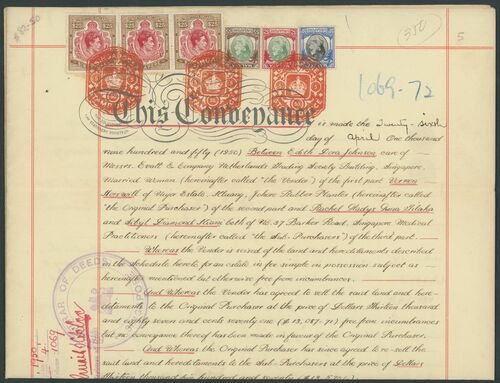 350
5
1069-72
This Conveyance is made the Twenty-sixth
day of April One thousand
nine hundred and fifty (1950) Between Edith Dora Johnson care of
Messrs. Evatt & Company Netherlands Trading Society Building, Singapore,
Married Woman (hereinafter called "the Vendor") of the first part Vernon
of Major Estate, Kluang, Johore Rubber Planter (hereinafter called
"the Original Purchaser") of the second part and Rachel Gladys
and Sibyl Diamond Kiani both of No. 37 Barker Road, Singapore Medical
Practitioners (hereinafter called "the Sub-Purchasers") of the third part.
Whereas the Vendor is seised of the land and hereditaments described
in the schedule hereto for an estate in fee simple in possession subject as
hereinafter mentioned but otherwise free from incumbrances.
And Whereas the Vendor has agreed to sell the said land and here-
ditaments to the Original Purchaser at the price of Dollars Thirteen thousand
and eighty seven and cents seventy one ($13,087.71) free from incumbrances
but no conveyance thereof has been made in favour of the Original Purchaser.
And Whereas the Original Purchaser has since agreed to re-sell the
said land and hereditaments to the Sub-Purchasers at the price of Dollars
OF DEEDS
1950
4
1069